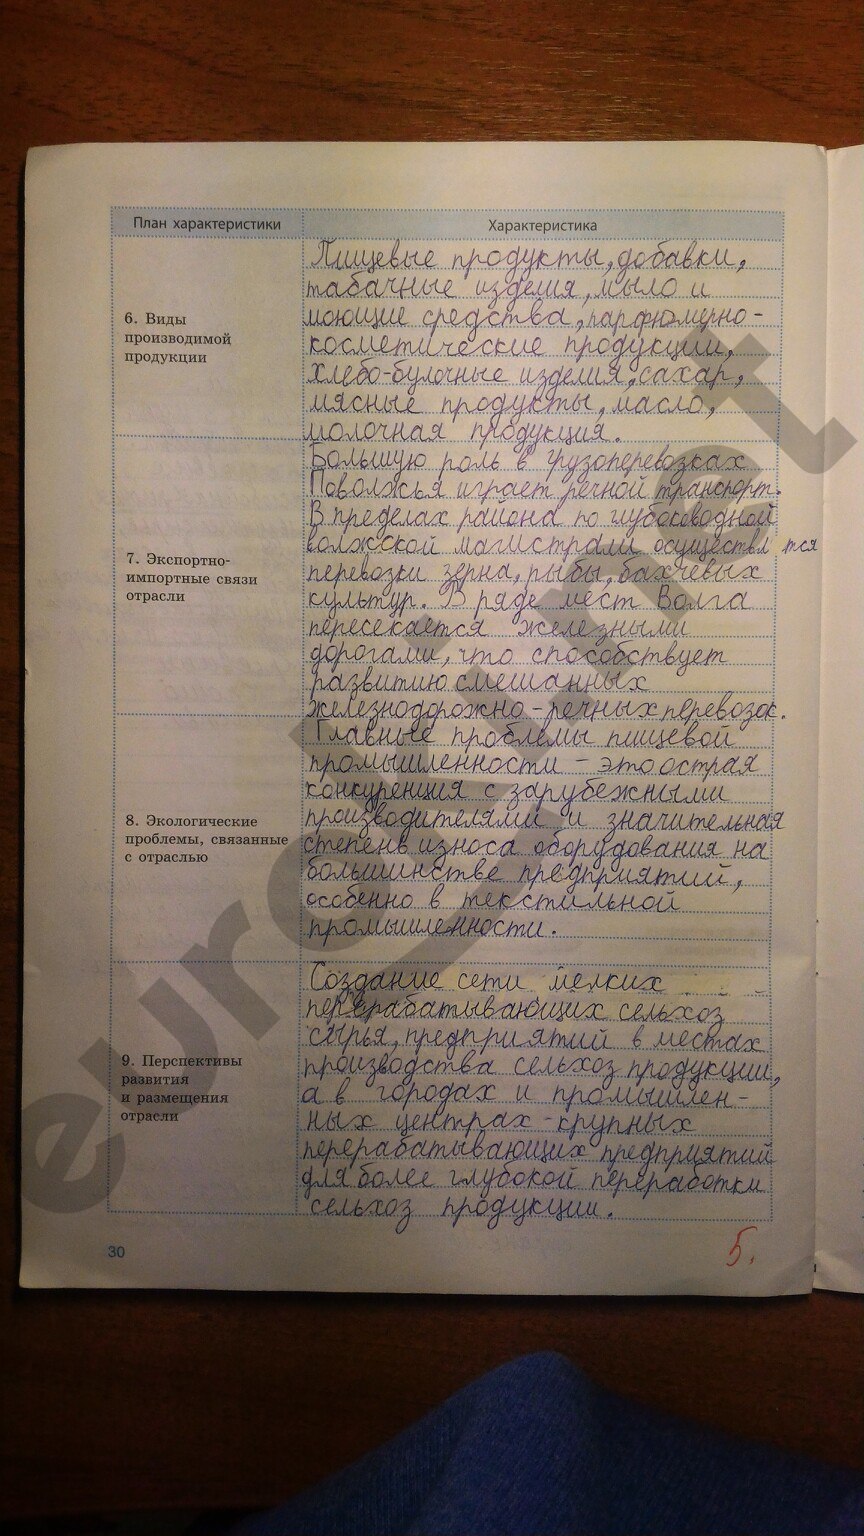 План характеристики
Характеристика
6. Виды
производимой
продукции
Пищевые продукты, добавки,
табачные изделия, мыло и
моющие средства, парфюмерно-
косметические продукции,
хлебо-булочные изделия, сахар,
мясные продукты, масло,
молочная продукция.
7. Экспортно-
импортные связи
отрасли
Большую роль в грузоперевозках
Поволжья играет речной транспорт.
В пределах района по глубоководной
волжской магистрали осуществл тся
перевозки зерна, рыбы, бахчевых
культур. В ряде мест Волга
пересекается железными
дорогами, что способствует
развитию смешанных
железнодорожно-речных перевозок.
8. Экологические
проблемы, связанные
с отраслью
Главные проблемы пищевой
промышленности - это острая
конкуренция с зарубежными
производителями и значительная
степень износа оборудования на
большинстве предприятий,
особенно в текстильной
промышленности.
9. Перспективы
развития
и размещения
отрасли
Создание сети мелких
перерабатывающих сельхоз
сырья, предприятий в местах
производства сельхоз продукции,
а в городах и промышлен-
ных центрах - крупных
перерабатывающих предприятий
для более глубокой переработки
сельхоз продукции.
30
5.
euroki.net